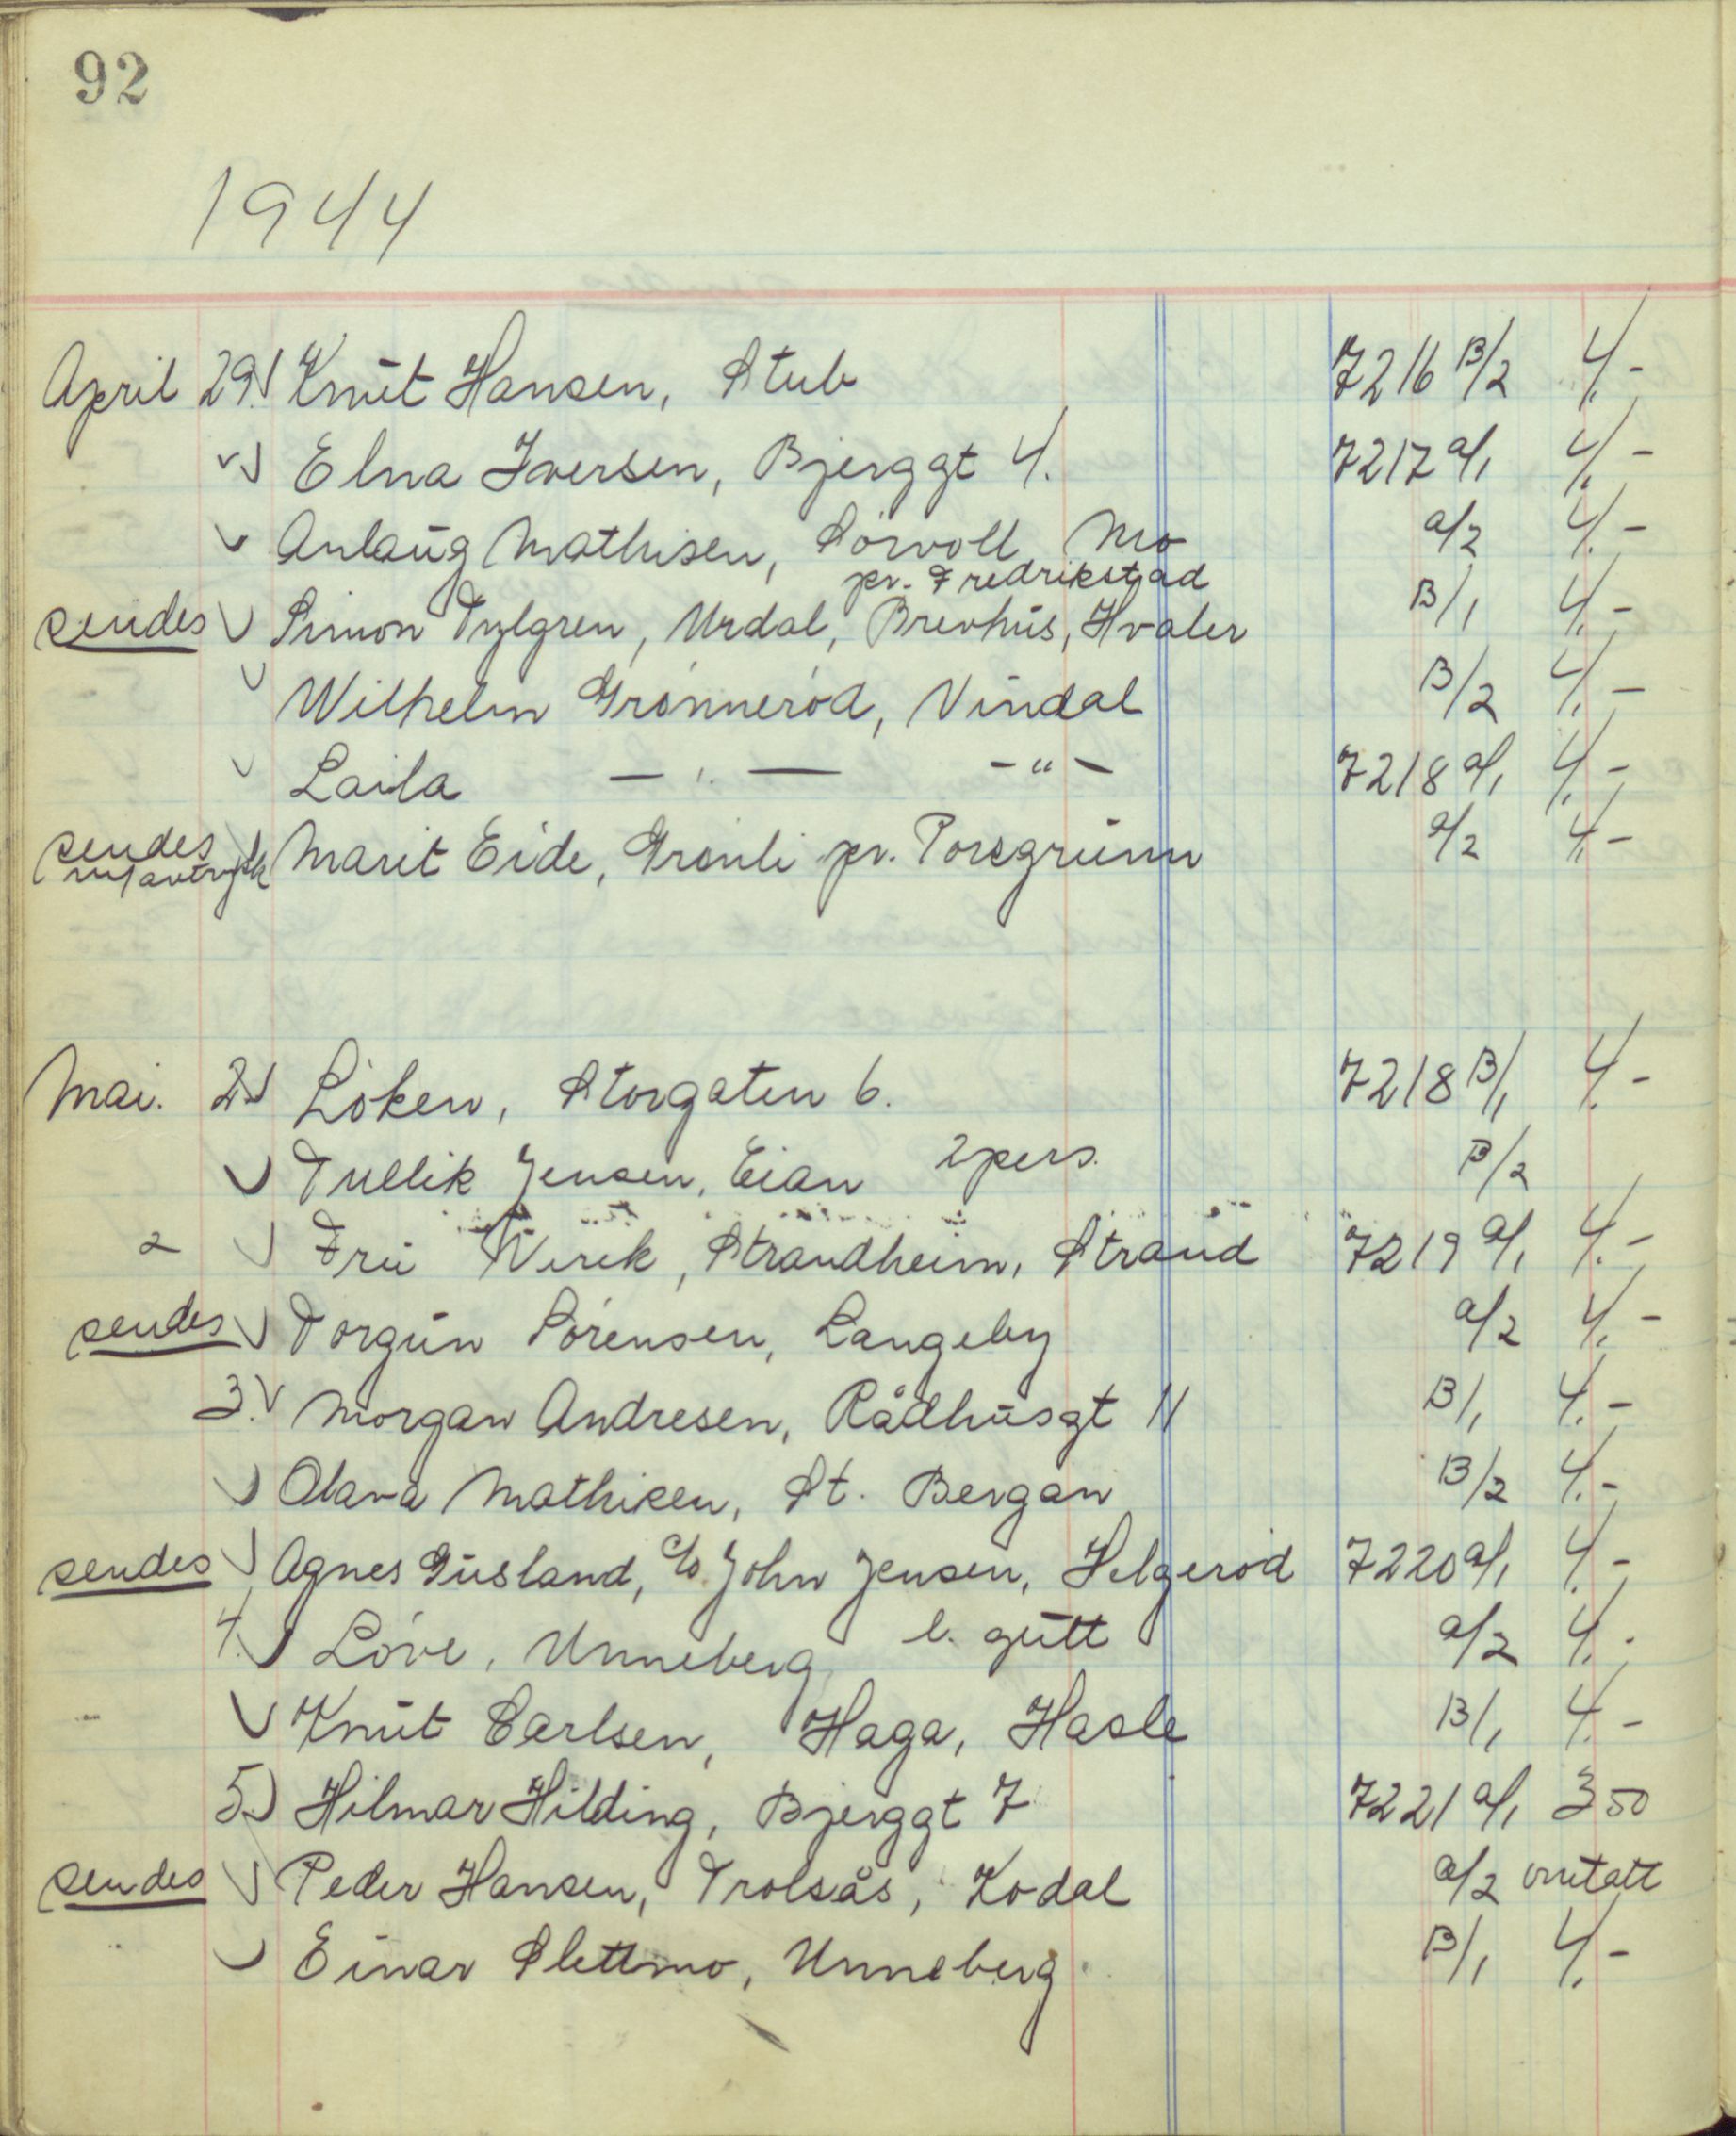 92
1944
April 29. Knut Hansen, Stub 7216 B/2 4,-
Elna Iversen, Bjerggt 4. 7217 a/1 4,-
Anlaug Mathisen, Sörvoll, Mo a/2 4,-
pr. Fredrikstad
sendes Simon Tylgren, Urdal, Brevhus, Hvaler B/1 4,-
Wilhelm Grönneröd, Vindal B/2 4,-
Laila — " — - " - 7218 a/1 4,-
sendes Marit Eide, Grönli pr. Porsgrunn a/2 4,-
Mai. 2. Löken, Storgaten 6. 7218 B/1 4,-
Tullik Jensen, Eian 2 pers. B/2
2 Fru Virik, Strandheim, Strand 7219 a/1 4,-
sendes Torgun Sörensen, Langeby a/2 4,-
3. Morgan Andresen, Rådhusgt 11 B/1 4,-
Olava Mathisen, St. Bergan B/2 4,-
sendes Agnes Gusland, c/o John Jensen, Helgeröd 7220 a/1 4,-
4. Löve, Unneberg l. gutt a/2 4,-
Knut Carlsen, Haga, Hasle B/1 4,-
5. Hilmar Hilding, Bjerggt 7 7221 a/1 3 50
sendes Peder Hansen, Trolsås, Kodal a/2 omtatt
Einar Slettmo, Unneberg B/1 4,-